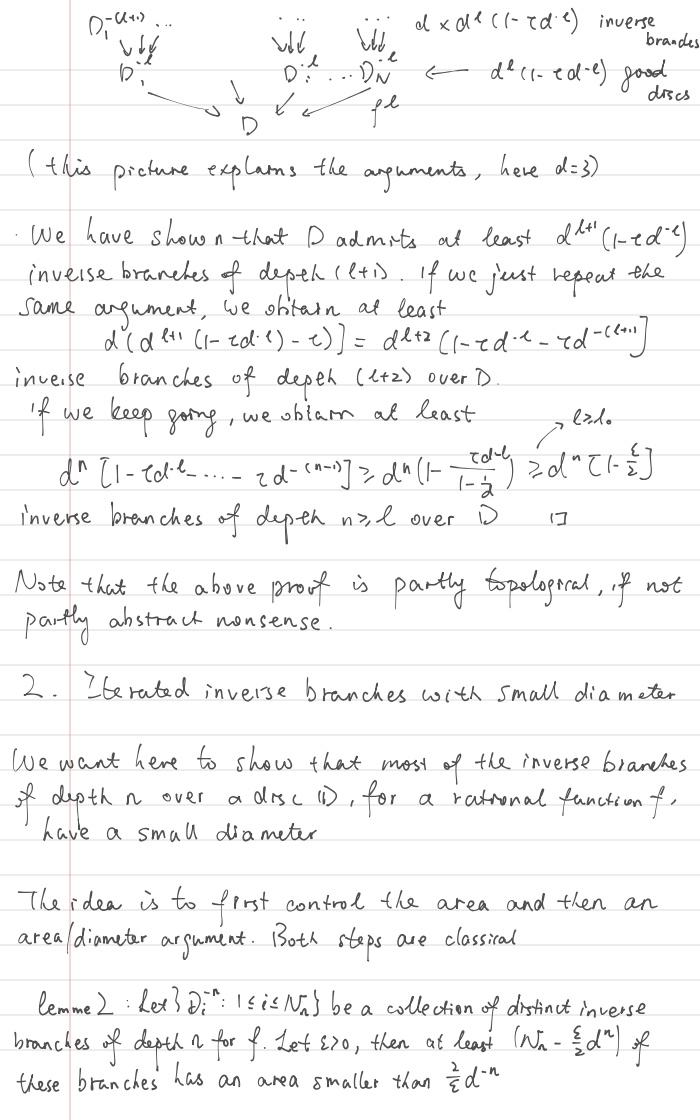 D₁^{-(l+1)} ... ... ... d × d^l (1-τd^{-l}) inverse branches
D₁^{-l} D_i^{-l} ... D_N^{-l} ← d^l (1-τd^{-l}) good discs
D f^l
(this picture explains the arguments, here d=3)
· We have shown that D admits at least d^{l+1}(1-τd^{-l})
inverse branches of depth (l+1). If we just repeat the
same argument, we obtain at least
d(d^{l+1} (1-τd^{-l}) - τ)] = d^{l+2} (1-τd^{-l} - τd^{-(l+1)}]
inverse branches of depth (l+2) over D.
if we keep going, we obtain at least
→ l≥l₀
d^n [1-τd^{-l} - .... - τd^{-(n-1)}] ≥ d^n (1 - \frac{τd^{-l}}{1-\frac{1}{d}}) ≥ d^n [1-\frac{ε}{2}]
inverse branches of depth n≥l over D □
Note that the above proof is partly topological, if not
partly abstract nonsense.
2. Iterated inverse branches with small diameter
We want here to show that most of the inverse branches
of depth n over a disc D, for a rational function f,
have a small diameter
The idea is to first control the area and then an
area/diameter argument. Both steps are classical
lemme 2 : Let {D_i^{-n} : 1≤i≤N_n} be a collection of distinct inverse
branches of depth n for f. Let ε>0, then at least (N_n - \frac{ε}{2}d^n) of
these branches has an area smaller than \frac{2}{ε} d^{-n}